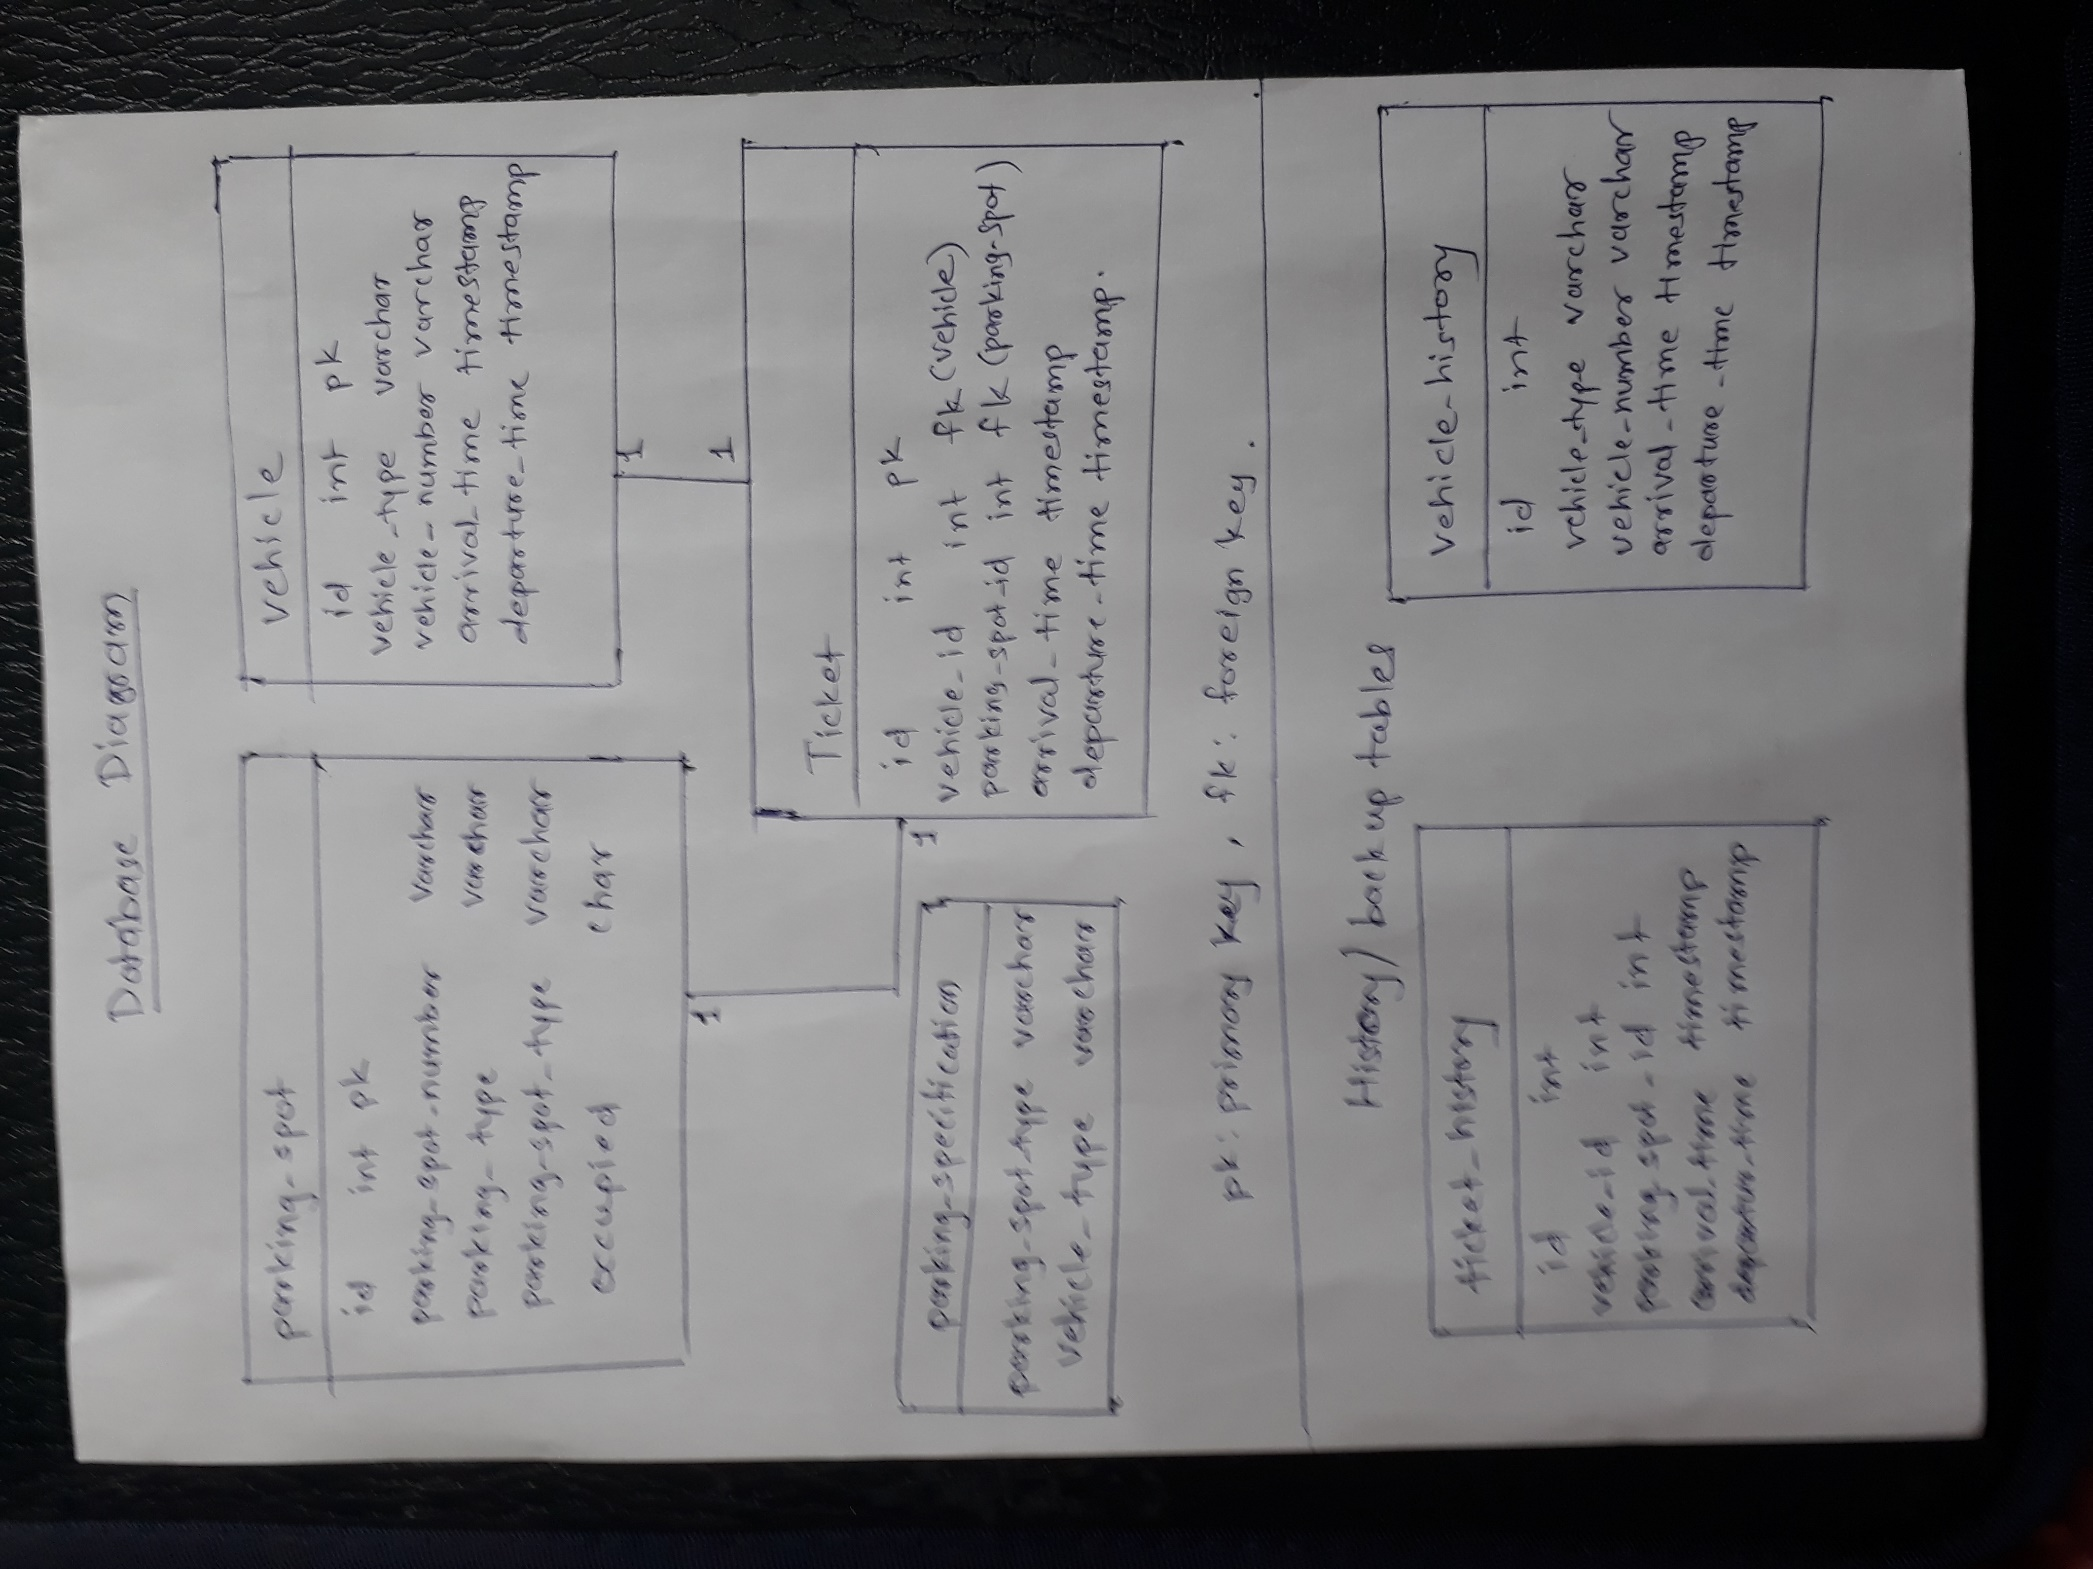 Database Diagram
parking-spot
id int pk
parking-spot-number varchar
parking-type varchar
parking-spot-type varchar
occupied char
vehicle
id int pk
vehicle-type varchar
vehicle-number varchar
arrival-time timestamp
departure-time timestamp
1
1
1
1
Ticket
id int pk
vehicle-id int fk (vehicle)
parking-spot-id int fk (parking-spot)
arrival-time timestamp
departure-time timestamp.
parking-specification
parking-spot-type varchar
vehicle-type varchar
pk: primary key, fk: foreign key.
History/backup tables
ticket-history
id int
vehicle-id int
parking-spot-id int
arrival-time timestamp
departure-time timestamp
vehicle-history
id int
vehicle-type varchar
vehicle-number varchar
arrival-time timestamp
departure-time timestamp